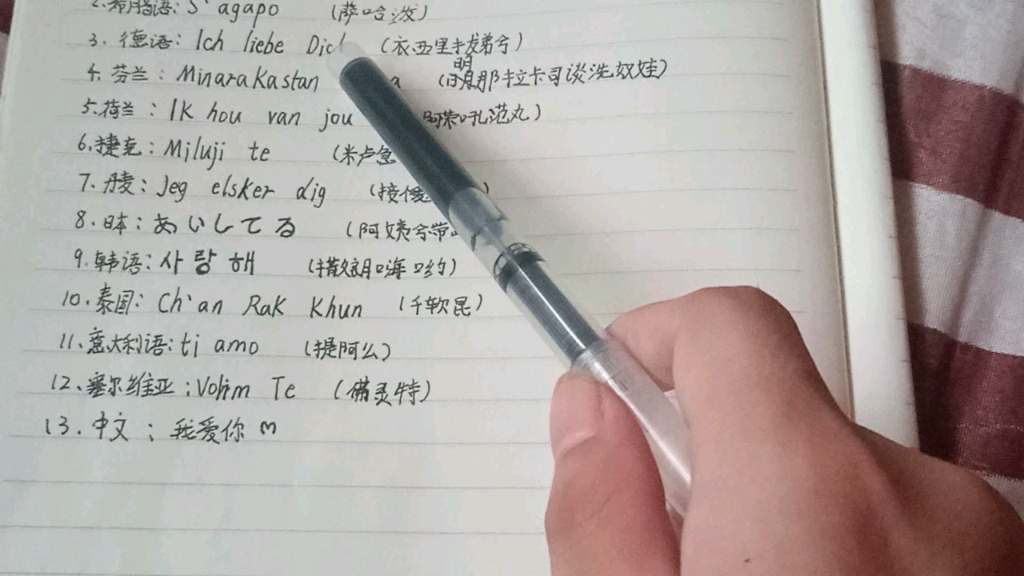 2.希腊语: S'agapo (萨哈泼)
3. 德语: Ich liebe Dich (衣西里拔弟兮)
4. 芬兰: Minarakastan a (明那拉卡司谈洗奴娃)
5. 荷兰: Ik hou van jou 阿荣吼范丸)
6. 捷克: Miluji te (米卢急
7. 丹麦: Jeg elsker dig (接傻 )
8. 日本: あいしてる (阿姨兮带
9. 韩语: 사랑해 (撒朗嗨哟)
10. 泰国: Ch'an Rak Khun (千软昆)
11. 意大利语: ti amo (提阿么)
12. 塞尔维亚: Volim Te (佛灵特)
13. 中文: 我爱你 m